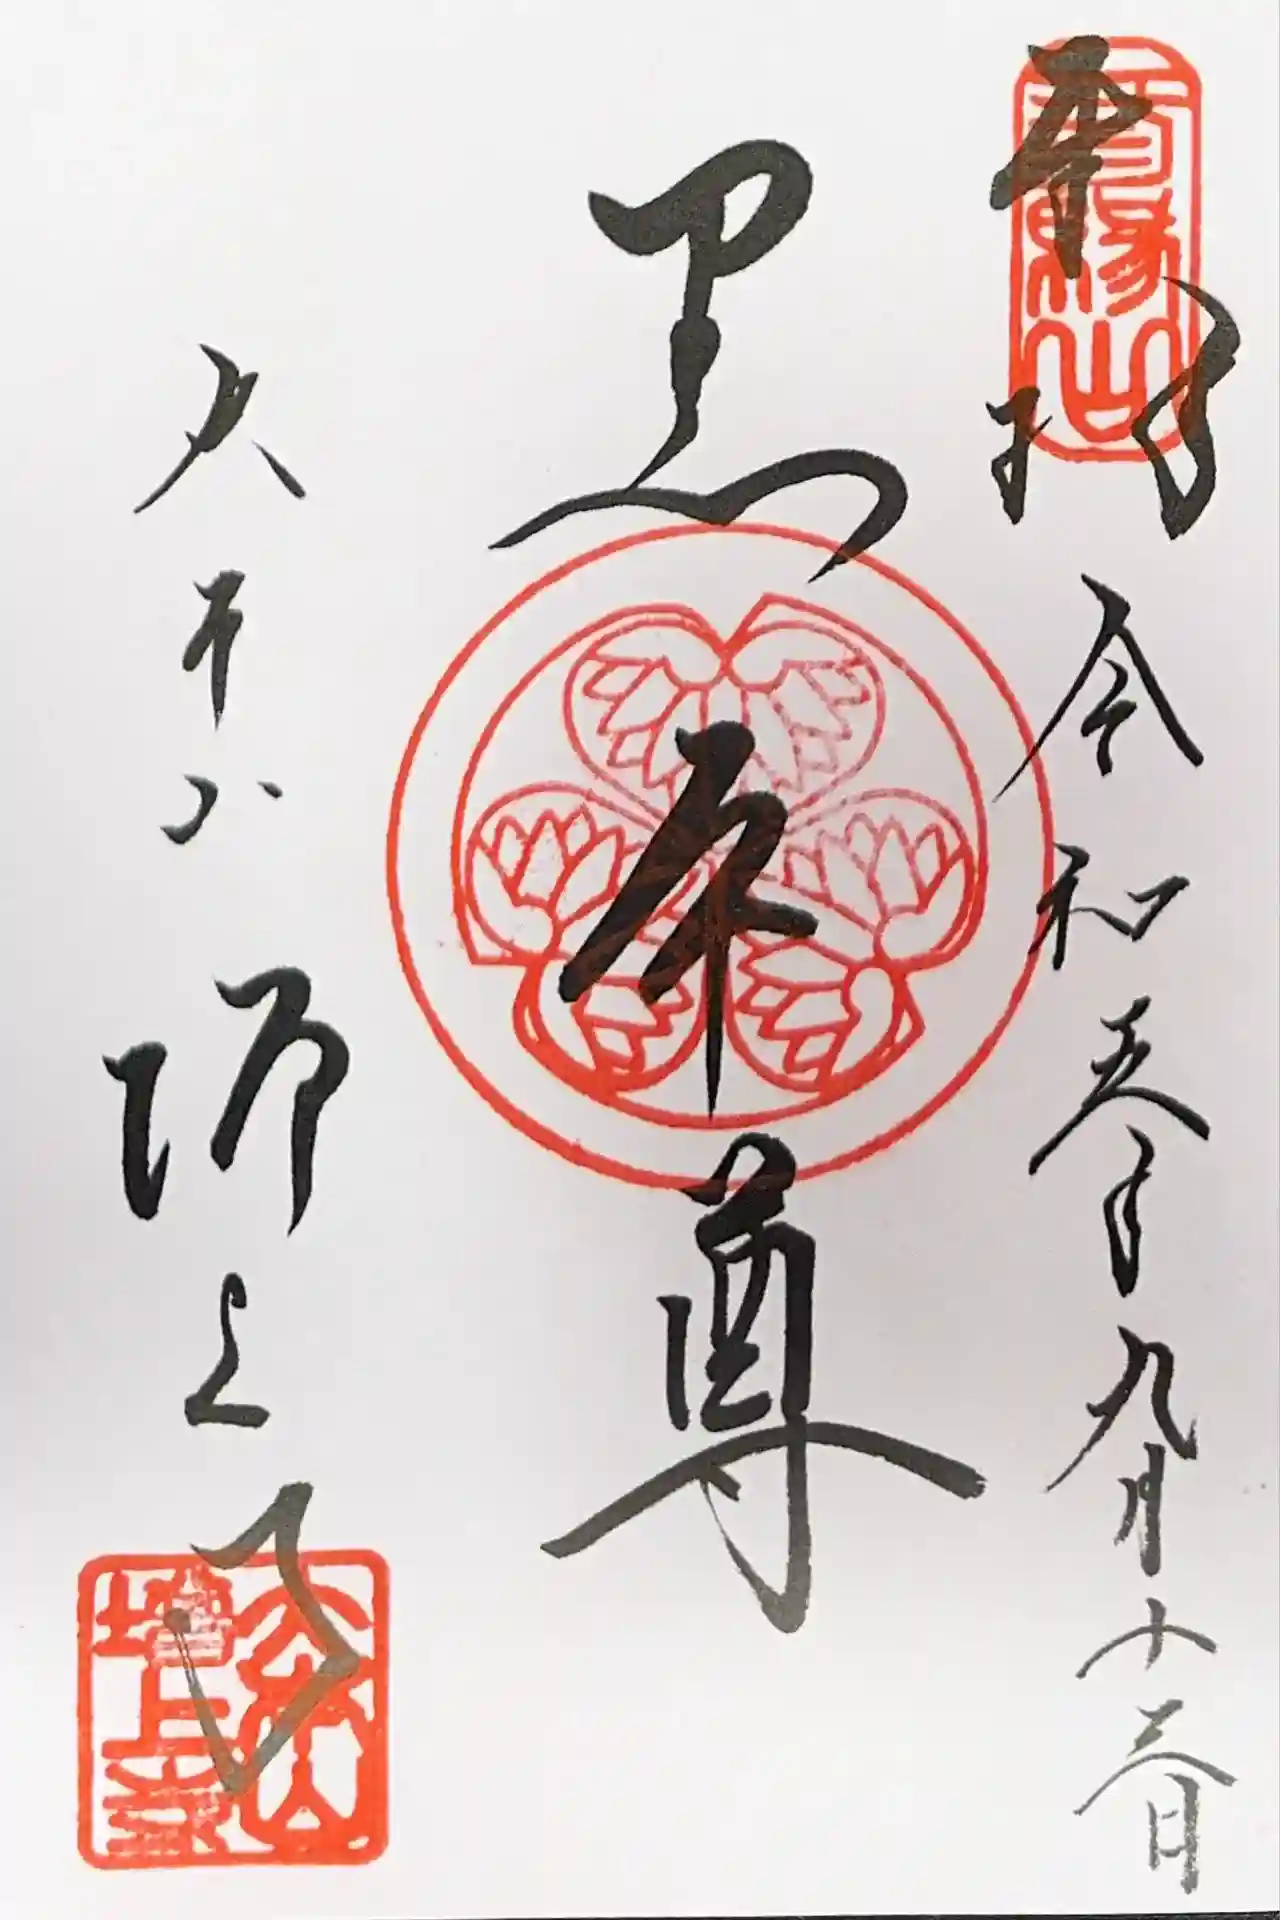 奉拝
令和五年九月十三日
黒本尊
大本山
増上寺
三縁山
大本山
増上寺